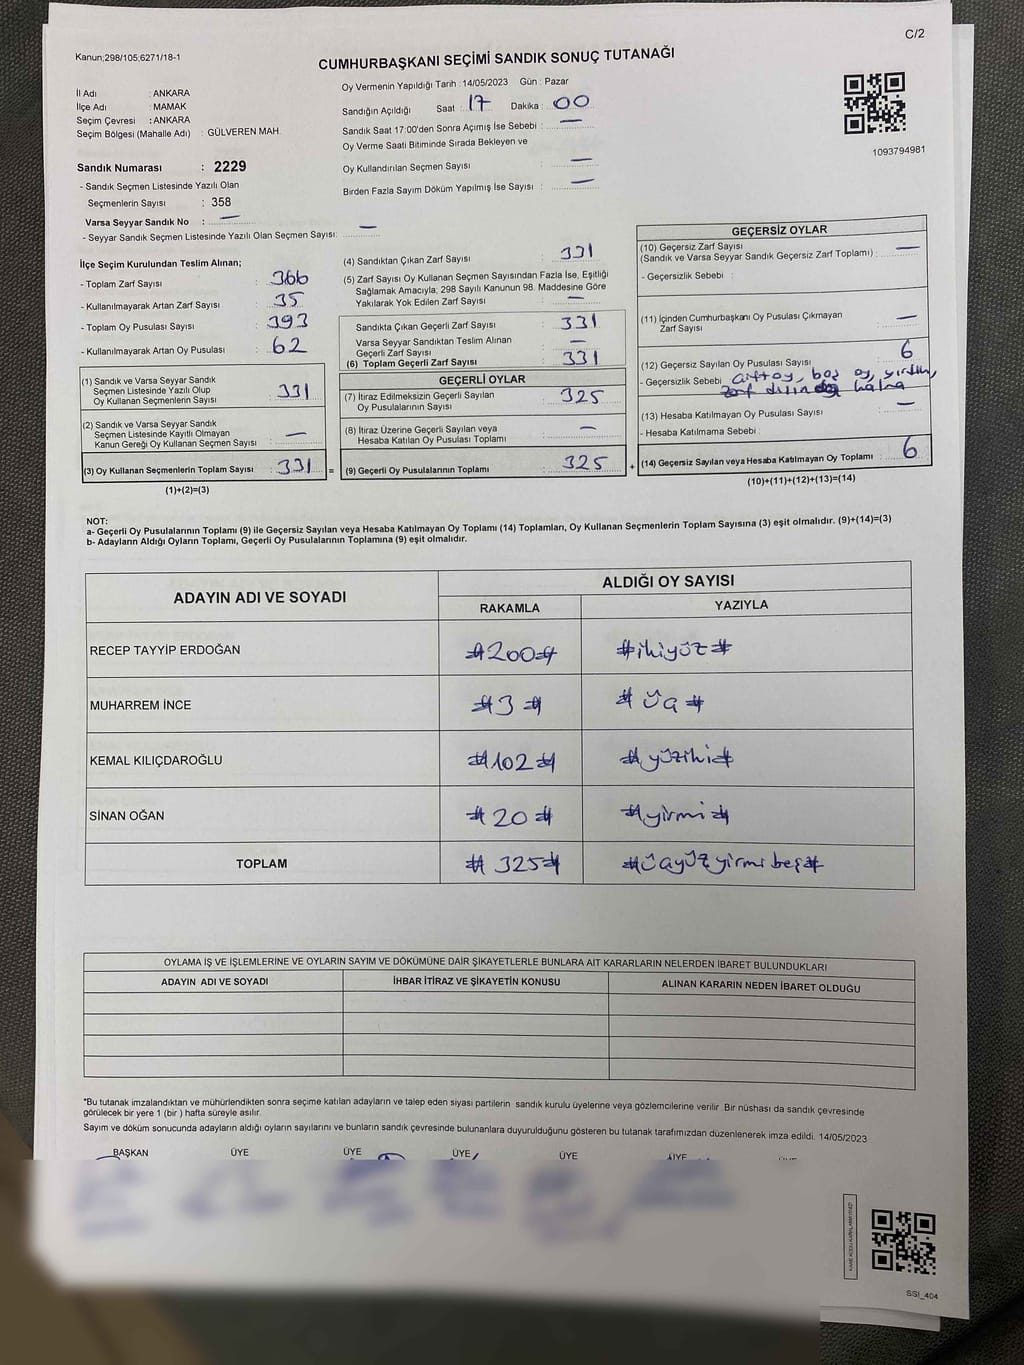 C/2
Kanun;298/105;6271/18-1
CUMHURBAŞKANI SEÇİMİ SANDIK SONUÇ TUTANAĞI
Oy Vermenin Yapıldığı Tarih : 14/05/2023 Gün : Pazar
İl Adı : ANKARA
İlçe Adı : MAMAK
Seçim Çevresi : ANKARA
Seçim Bölgesi (Mahalle Adı) : GÜLVEREN MAH.
Sandığın Açıldığı Saat : 17 Dakika : 00
Sandık Saat 17:00'den Sonra Açımış İse Sebebi : —
Oy Verme Saati Bitiminde Sırada Bekleyen ve
Oy Kullandırılan Seçmen Sayısı : —
Birden Fazla Sayım Döküm Yapılmış İse Sayısı : —
1093794981
Sandık Numarası : 2229
- Sandık Seçmen Listesinde Yazılı Olan
Seçmenlerin Sayısı : 358
Varsa Seyyar Sandık No : —
- Seyyar Sandık Seçmen Listesinde Yazılı Olan Seçmen Sayısı: —
İlçe Seçim Kurulundan Teslim Alınan;
- Toplam Zarf Sayısı : 366
- Kullanılmayarak Artan Zarf Sayısı : 35
- Toplam Oy Pusulası Sayısı : 393
- Kullanılmayarak Artan Oy Pusulası : 62
(1) Sandık ve Varsa Seyyar Sandık
Seçmen Listesinde Yazılı Olup
Oy Kullanan Seçmenlerin Sayısı : 331
(2) Sandık ve Varsa Seyyar Sandık
Seçmen Listesinde Kayıtlı Olmayan
Kanun Gereği Oy Kullanan Seçmen Sayısı : —
(3) Oy Kullanan Seçmenlerin Toplam Sayısı : 331 =
(1)+(2)=(3)
(4) Sandıktan Çıkan Zarf Sayısı : 331
(5) Zarf Sayısı Oy Kullanan Seçmen Sayısından Fazla İse, Eşitliği
Sağlamak Amacıyla; 298 Sayılı Kanunun 98. Maddesine Göre
Yakılarak Yok Edilen Zarf Sayısı : —
Sandıkta Çıkan Geçerli Zarf Sayısı : 331
Varsa Seyyar Sandıktan Teslim Alınan
Geçerli Zarf Sayısı : —
(6) Toplam Geçerli Zarf Sayısı : 331
GEÇERLİ OYLAR
(7) İtiraz Edilmeksizin Geçerli Sayılan
Oy Pusulalarının Sayısı : 325
(8) İtiraz Üzerine Geçerli Sayılan veya
Hesaba Katılan Oy Pusulası Toplamı : —
(9) Geçerli Oy Pusulalarının Toplamı : 325 +
GEÇERSİZ OYLAR
(10) Geçersiz Zarf Sayısı
(Sandık ve Varsa Seyyar Sandık Geçersiz Zarf Toplamı) : —
- Geçersizlik Sebebi :
(11) İçinden Cumhurbaşkanı Oy Pusulası Çıkmayan
Zarf Sayısı : —
(12) Geçersiz Sayılan Oy Pusulası Sayısı : 6
- Geçersizlik Sebebi çift oy, boş oy, yırtık,
(13) Hesaba Katılmayan Oy Pusulası Sayısı : —
- Hesaba Katılmama Sebebi :
(14) Geçersiz Sayılan veya Hesaba Katılmayan Oy Toplamı : 6
(10)+(11)+(12)+(13)=(14)
NOT:
a- Geçerli Oy Pusulalarının Toplamı (9) ile Geçersiz Sayılan veya Hesaba Katılmayan Oy Toplamı (14) Toplamları, Oy Kullanan Seçmenlerin Toplam Sayısına (3) eşit olmalıdır. (9)+(14)=(3)
b- Adayların Aldığı Oyların Toplamı, Geçerli Oy Pusulalarının Toplamına (9) eşit olmalıdır.
ADAYIN ADI VE SOYADI
ALDIĞI OY SAYISI
RAKAMLA YAZIYLA
RECEP TAYYİP ERDOĞAN #200# #ikiyüz#
MUHARREM İNCE #3# #üç#
KEMAL KILIÇDAROĞLU #102# #yüziki#
SİNAN OĞAN #20# #yirmi#
TOPLAM #325# #üçyüzyirmibeş#
OYLAMA İŞ VE İŞLEMLERİNE VE OYLARIN SAYIM VE DÖKÜMÜNE DAİR ŞİKAYETLERLE BUNLARA AİT KARARLARIN NELERDEN İBARET BULUNDUKLARI
ADAYIN ADI VE SOYADI İHBAR İTİRAZ VE ŞİKAYETİN KONUSU ALINAN KARARIN NEDEN İBARET OLDUĞU
*Bu tutanak imzalandıktan ve mühürlendikten sonra seçime katılan adayların ve talep eden siyasi partilerin sandık kurulu üyelerine veya gözlemcilerine verilir. Bir nüshası da sandık çevresinde
görülecek bir yere 1 (bir ) hafta süreyle asılır.
Sayım ve döküm sonucunda adayların aldığı oyların sayılarını ve bunların sandık çevresinde bulunanlara duyurulduğunu gösteren bu tutanak tarafımızdan düzenlenerek imza edildi. 14/05/2023
BAŞKAN ÜYE ÜYE ÜYE ÜYE ÜYE
SSI_404